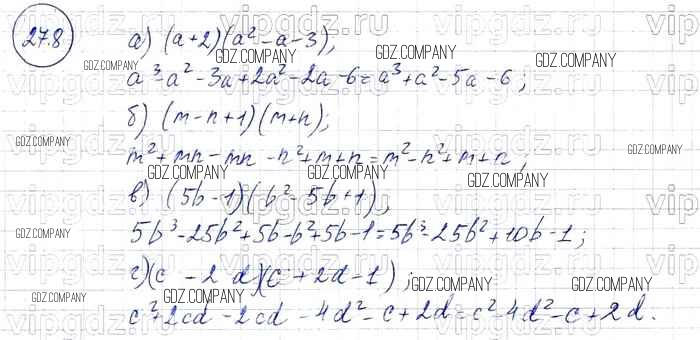 27.8
а) (a+2)(a²-a-3),
a³-a²-3a+2a²-2a-6=a³+a²-5a-6;
б) (m-n+1)(m+n);
m²+mn-mn-n²+m+n=m²-n²+m+n,
в) (5b-1)(b²-5b+1),
5b³-25b²+5b-b²+5b-1=5b³-25b²+10b-1;
г) (c-2d)(c+2d-1);
c²+2cd-2cd-4d²-c+2d=c²-4d²-c+2d.
vipgdz.ru
GDZ.COMPANY